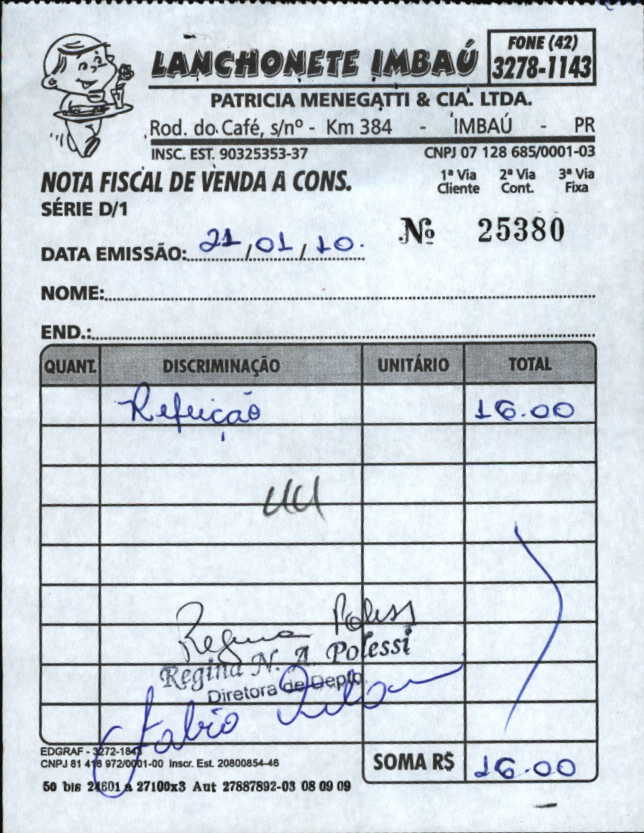 LANCHONETE IMBAÚ
FONE (42)
3278-1143
PATRICIA MENEGATTI & CIA. LTDA.
Rod. do Café, s/nº - Km 384 - IMBAÚ - PR
INSC. EST. 90325353-37 CNPJ 07 128 685/0001-03
NOTA FISCAL DE VENDA A CONS.
1ª Via Cliente 2ª Via Cont. 3ª Via Fixa
SÉRIE D/1
Nº 25380
DATA EMISSÃO: 21/01/10.
NOME:
END.:
QUANT. DISCRIMINAÇÃO UNITÁRIO TOTAL
Refeição 16.00
Regina Polessi
Regina N. A. Polessi
Diretora de Depto.
Fabio
EDGRAF - 3272-184
CNPJ 81 416 972/0001-00 Inscr. Est. 20800854-46
SOMA R$ 16.00
50 bls 24601 a 27100x3 Aut 27887892-03 08 09 09